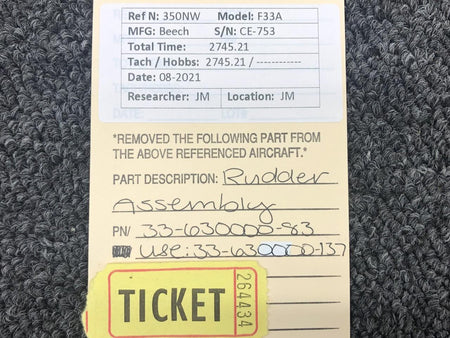 Ref N: 350NW Model: F33A
MFG: Beech S/N: CE-753
Total Time: 2745.21
Tach / Hobbs: 2745.21 / ------------
Date: 08-2021
Researcher: JM Location: JM
"REMOVED THE FOLLOWING PART FROM
THE ABOVE REFERENCED AIRCRAFT."
PART DESCRIPTION: Rudder
Assembly
PN/ 33-630000-83
Use: 33-630000-137
TICKET
264434